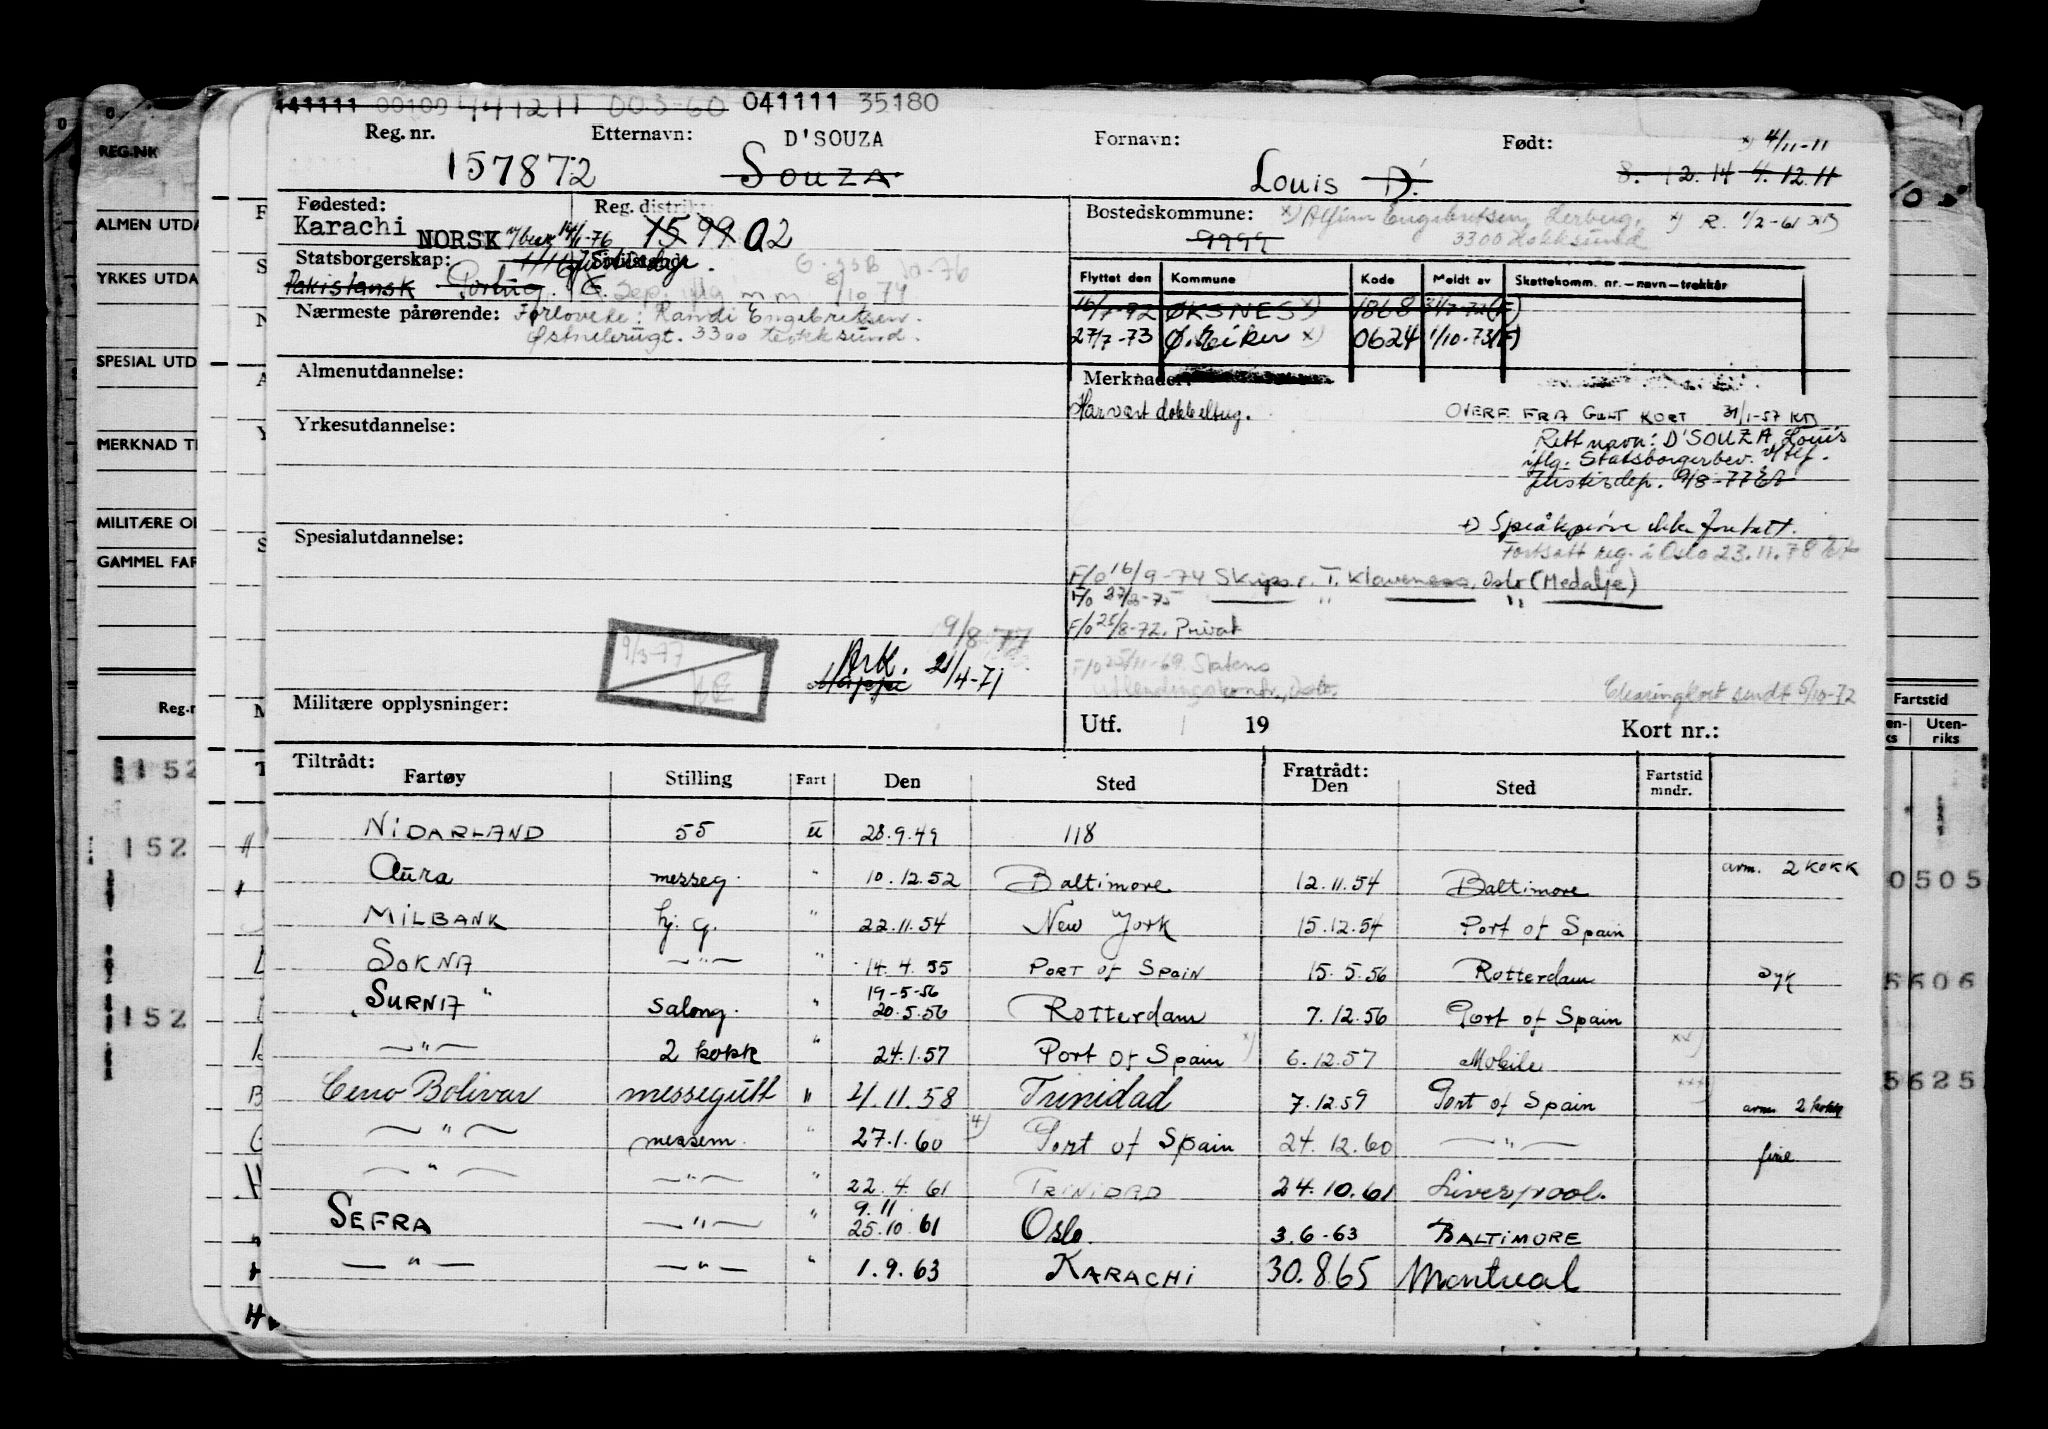 041111 35180
Reg. nr. Etternavn: D'SOUZA Fornavn: Født: x) 4/11-11
157872 SOUZA LOUIS D. 8.12.14 4.12.11
Fødested: Reg. distrikt: Bostedskommune:
Karachi NORSK 14/1-76 15 99 02 9999 x) R. 1/2-61
3300 Hokksund
Statsborgerskap:
Pakistansk Portug. G. Sep.
Flyttet den Kommune Kode Meldt av Skattekomm. nr.—navn—trekkår
ØKSNES x) 1868
27/7-73 Ø. Eiker x) 0624 1/10-73 (F)
Nærmeste pårørende: Forlovede: Randi Engebretsen.
3300 Hokksund.
Almenutdannelse: Merknader:
Har vært dobbeltreg. OVERF. FRA GULT KORT 31/1-57
Yrkesutdannelse: Rett navn: D'SOUZA, Louis
iflg. Statsborgerbev. v/tlf.
Justisdep. 9/8-77
+) Språkprøve ikke foretatt.
Spesialutdannelse: Fortsatt reg. i Oslo 23.11.78
F/O 16/9-74 Skips.r. T. Klaveness, Oslo (Medalje)
F/O 25/8-72. Privat
9/8-77
9/3-77
Ark. 21/4-71
F/O 25/11-69. Statens
utlendingskontr., Oslo.
Clearingkort sendt 5/10-72
Militære opplysninger: Utf. 19 Kort nr.:
Tiltrådt: Fratrådt:
Fartøy Stilling Fart Den Sted Den Sted Fartstid mndr.
NIDARLAND 55 u 28.9.49 118
Aura messeg. " 10.12.52 Baltimore 12.11.54 Baltimore avm. 2 KOKK
MILBANK hj. g. " 22.11.54 New York 15.12.54 Port of Spain
SOKNA —"— " 14.4.55 PORT OF SPAIN 15.5.56 Rotterdam syk
19-5-56
SURNA " salong. " 20.5.56 Rotterdam 7.12.56 Port of Spain
—"— 2 kokk " 24.1.57 Port of Spain x) 6.12.57 Mobile xx)
Cerro Bolivar messegutt " 4.11.58 Trinidad 7.12.59 Port of Spain xxx) avm. 2 kokk
—"— messem. " 27.1.60 4) Port of Spain 24.12.60 —"— ferie
—"— —"— " 22.4.61 TRINIDAD 24.10.61 Liverpool.
9.11.
SEFRA —"— " 25.10.61 Oslo. 3.6.63 BALTIMORE
—"— —"— " 1.9.63 KARACHI 30.8.65 Montreal
REG.NR
ALMEN UTDA
YRKES UTDA
SPESIAL UTD
MERKNAD TI
MILITÆRE OI
GAMMEL FAR
Reg.n
152
152
152
Fartstid
Uten-
riks
0505
5606
5625